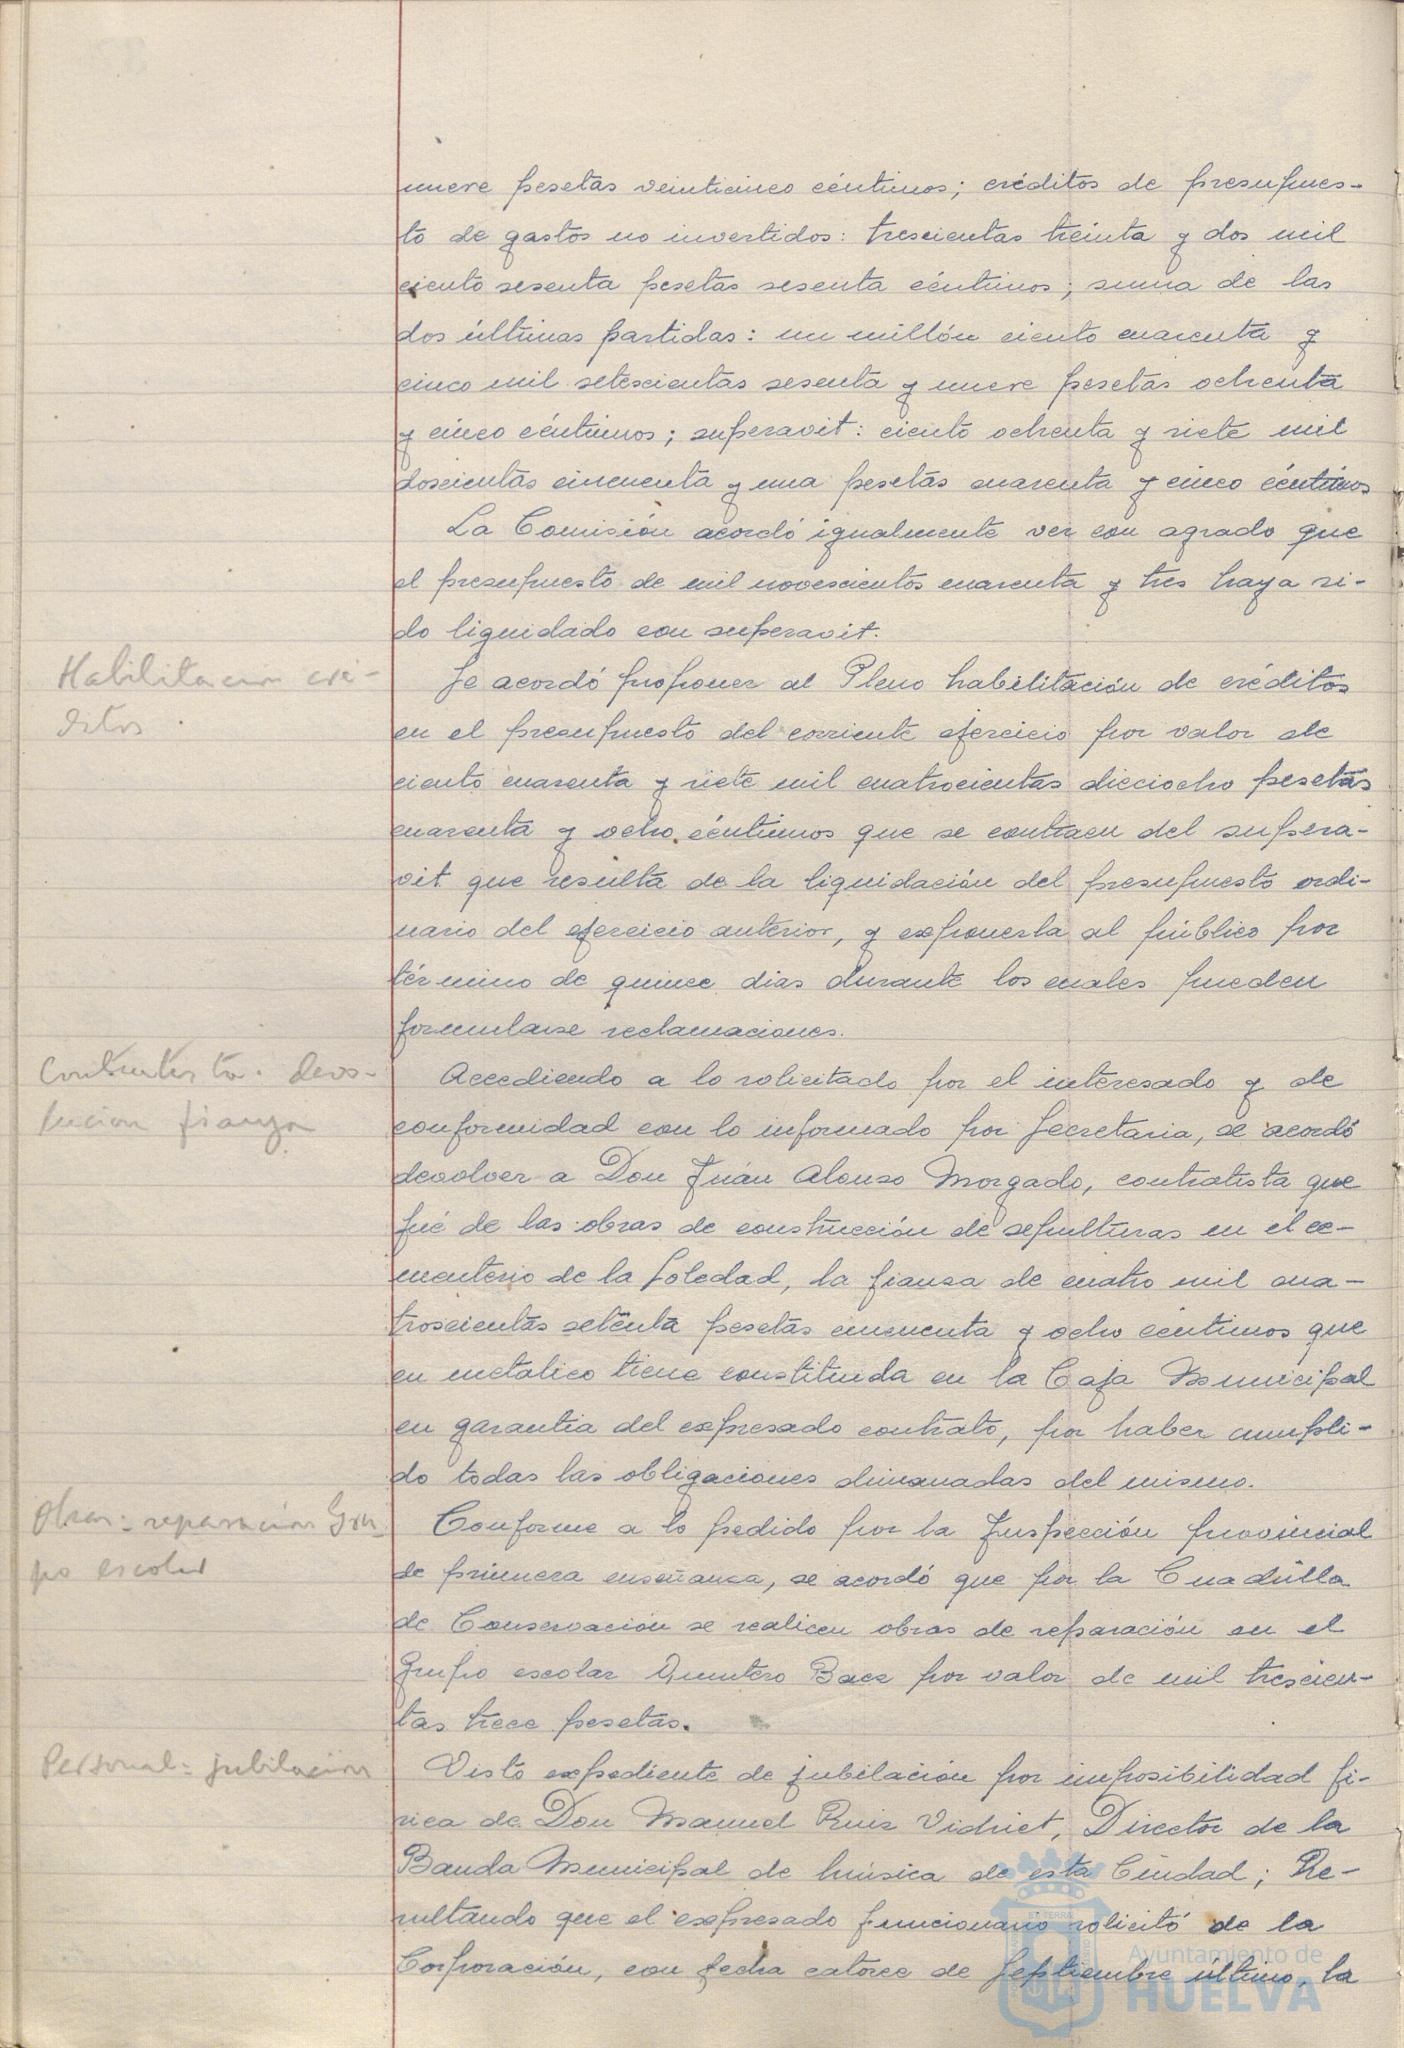 nueve pesetas veinticinco céntimos; créditos de presupues-
to de gastos no invertidos: trescientas treinta y dos mil
ciento sesenta pesetas sesenta céntimos; suma de las
dos últimas partidas: un millón ciento cuarenta y
cinco mil setescientas sesenta y nueve pesetas ochenta
y cinco céntimos; superavit: ciento ochenta y siete mil
doscientas cincuenta y una pesetas cuarenta y cinco céntimos
La Comisión acordó igualmente ver con agrado que
el presupuesto de mil novescientos cuarenta y tres haya si-
do liquidado con superavit.
Habilitacion cré-
ditos
Se acordó proponer al Pleno habilitación de créditos
en el presupuesto del corriente ejercicio por valor de
ciento cuarenta y siete mil cuatrocientas dieciocho pesetas
cuarenta y ocho céntimos que se contraen del supera-
vit que resulta de la liquidación del presupuesto ordi-
nario del ejercicio anterior, y exponerla al público por
término de quince dias durante los cuales pueden
formularse reclamaciones.
Contratista. devo-
lucion fianza
Accediendo a lo solicitado por el interesado y de
conformidad con lo informado por Secretaria, se acordó
devolver a Don Juán Alonso Morgado, contratista que
fué de las obras de construcción de sepulturas en el ce-
menterio de la Soledad, la fianza de cuatro mil cua-
troscientas setenta pesetas cincuenta y ocho centimos que
en metalico tiene constituida en la Caja Municipal
en garantia del expresado contrato, por haber cumpli-
do todas las obligaciones dimanadas del mismo.
Obras = reparación Gru-
po escolar
Conforme a lo pedido por la Inspección provincial
de primera enseñanza, se acordó que por la Cuadrilla
de Conservación se realicen obras de reparación en el
Grupo escolar Quintero Baez por valor de mil trescien-
tas trece pesetas.
Personal = jubilación
Visto expediente de jubilación por imposibilidad fi-
sica de Don Manuel Ruiz Vidriet, Director de la
Banda Municipal de música de esta Ciudad; Re-
sultando que el expresado funcionario solicitó de la
Corporación, con fecha catorce de Septiembre último, la
Ayuntamiento de
HUELVA